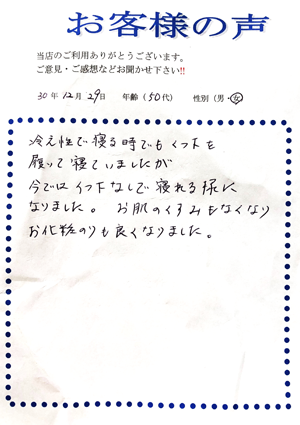 お客様の声
当店のご利用ありがとうございます。
ご意見・ご感想などお聞かせ下さい!!
30年 12月 29日 年齢(50代) 性別(男・女)
冷え性で寝る時でもくつ下を
履って寝ていましたが
今ではくつ下なしで寝れる様に
なりました。 お肌のくすみもなくなり
お化粧のりも良くなりました。